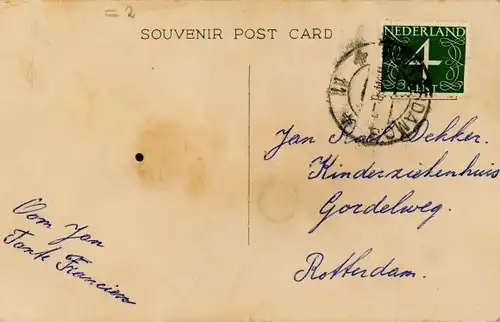 = 2
SOUVENIR POST CARD
NEDERLAND
4
CENT
Jan Dekker.
Kinderziekenhuis
Gordelweg.
Rotterdam.
Oom Jan
Tante Francien